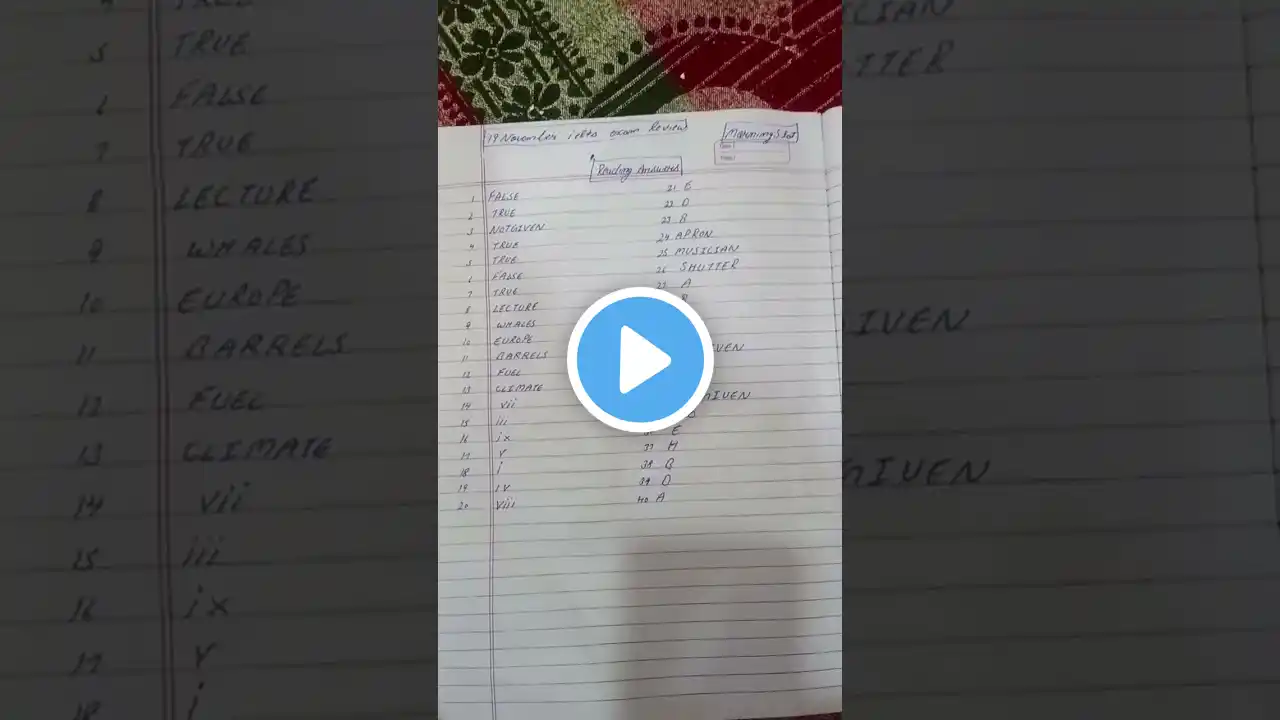 5 TRUE
6 FALSE
7 TRUE
8 LECTURE
9 WHALES
10 EUROPE
11 BARRELS
12 FUEL
13 CLIMATE
14 vii
15 iii
16 ix
17 V
18 i
19 November ielts exam Review
Morning Slot
Reading Answers
1 FALSE
2 TRUE
3 NOTGIVEN
4 TRUE
5 TRUE
6 FALSE
7 TRUE
8 LECTURE
9 WHALES
10 EUROPE
11 BARRELS
12 FUEL
13 CLIMATE
14 vii
15 iii
16 ix
17 V
18 i
19 iv
20 viii
21
22 D
23 B
24 APRON
25 MUSILIAN
26 SHUTTER
27 A
VEN
GIVEN
E
37 H
38
39 D
40 A
ILIAN
TTER
IVEN
GIVEN